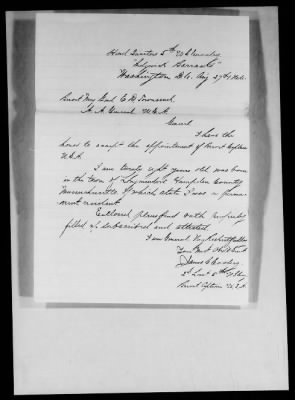 Head Quarters 5th U.S. Cavalry
"Sedgwick Barracks"
Washington D.C. Aug 27th 1866.
Brevt Maj Genl E D Townsend
A. A. General U.S.A.
General
I have the
honor to accept the appointment of Brevt Captain
U.S.A.
I am twenty eight years old was born
in the town of Hampden County
Massachusetts of which state I was a perma-
nent resident.
Enclosed please find oath properly
filled up subscribed and attested.
I am General Very Respectfully
Your Most Obt Servt
James
2d Lieut 5th U.S. Cav
Brevt Captain U.S.A.